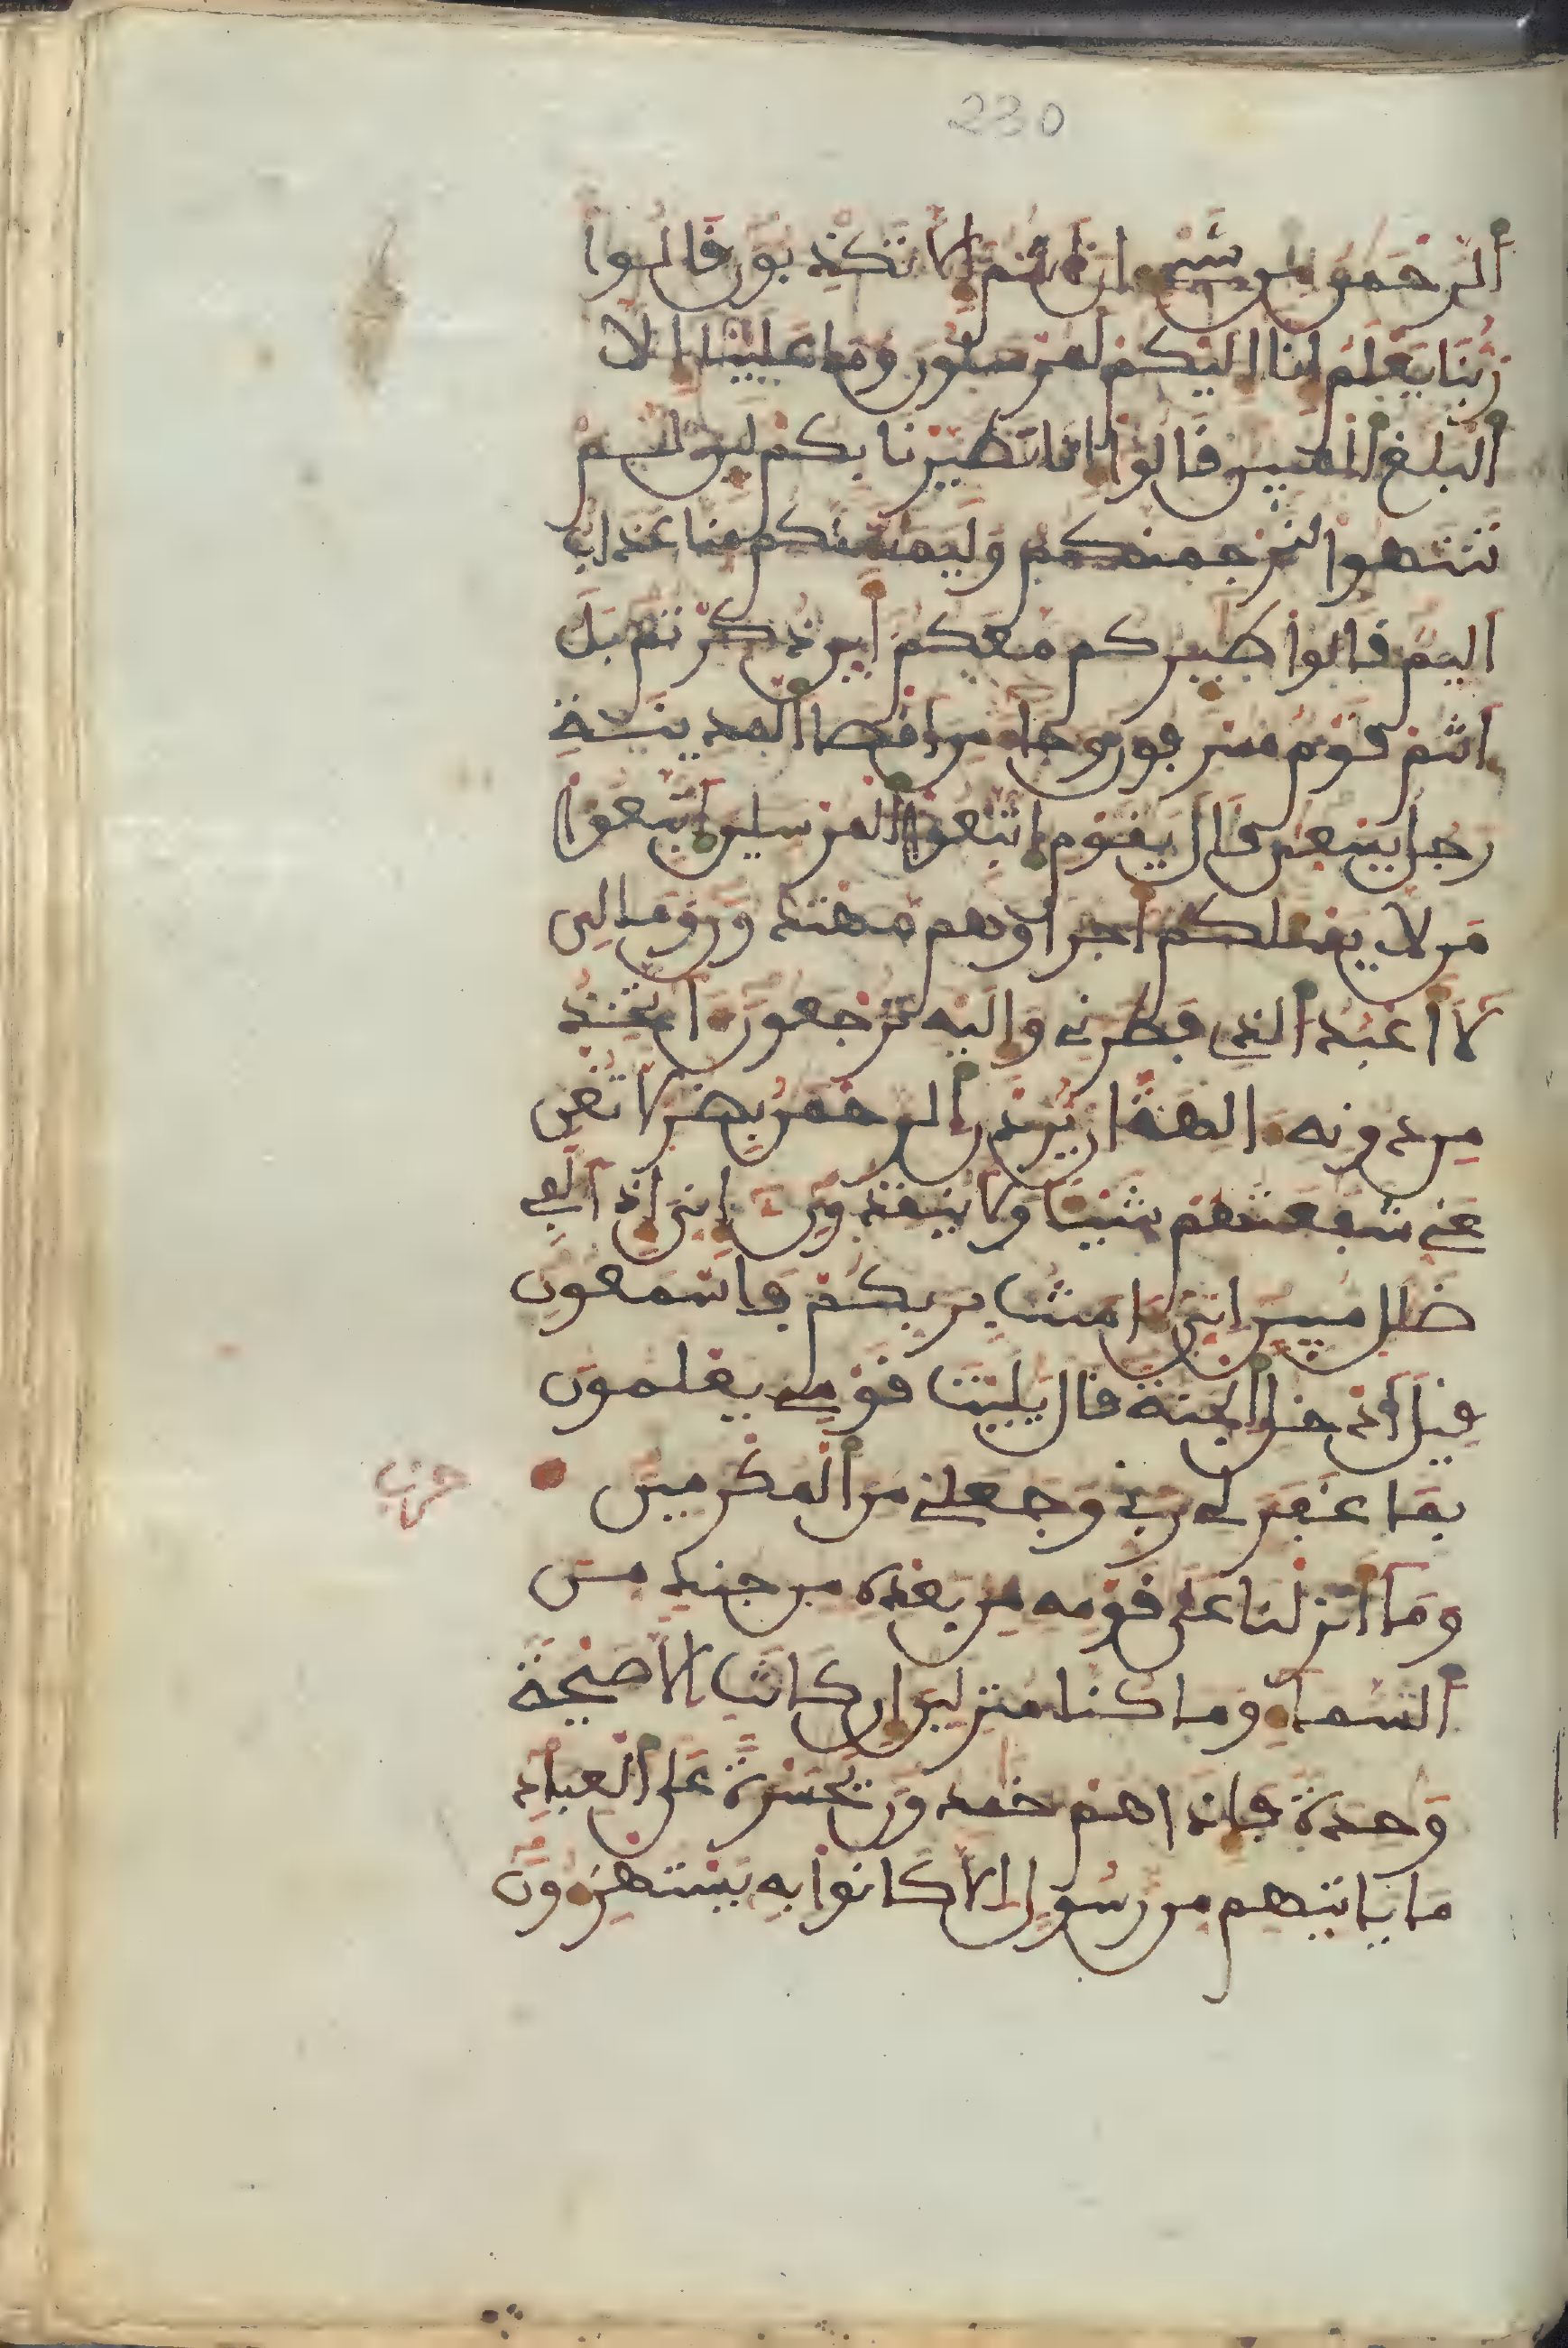 230
ألرحمن من شىء ان انتم الا تكذبون قالوا
ربنا يعلم انا اليكم لمرسلون وما علينا الا
ألبلغ ألمبين قالوا انا تطيرنا بكم لين لم
تنتهوا لنرجمنكم وليمسنكم منا عذاب
اليم قالوا طيركم معكم أين ذكرتم بل
انتم قوم مسرفون وجا من اقصا ألمدينة
رجل يسعى قال يقوم اتبعوا ألمرسلين اتبعوا
من لا يسلكم أجرا وهم مهتدون وما لى
لا أعبد ألذى فطرنى واليه ترجعون أتخذ
من دونه الهة ان يردن ألرحمن بضر لا تغن
عنى شفعتهم شيا ولا ينقذون انى اذا لفى
ضلل مبين انى امنت بربكم فاسمعون
قيل ادخل ألجنة قال يليت قومى يعلمون
بما غفر لى ربى وجعلنى من ألمكرمين
حزب
وما أنزلنا على قومه من بعده من جند من
ألسما وما كنا منزلين ان كانت الا صيحة
وحدة فاذا هم خمدون يحسرة على ألعباد
ما ياتيهم من رسول الا كانوا به يستهزون